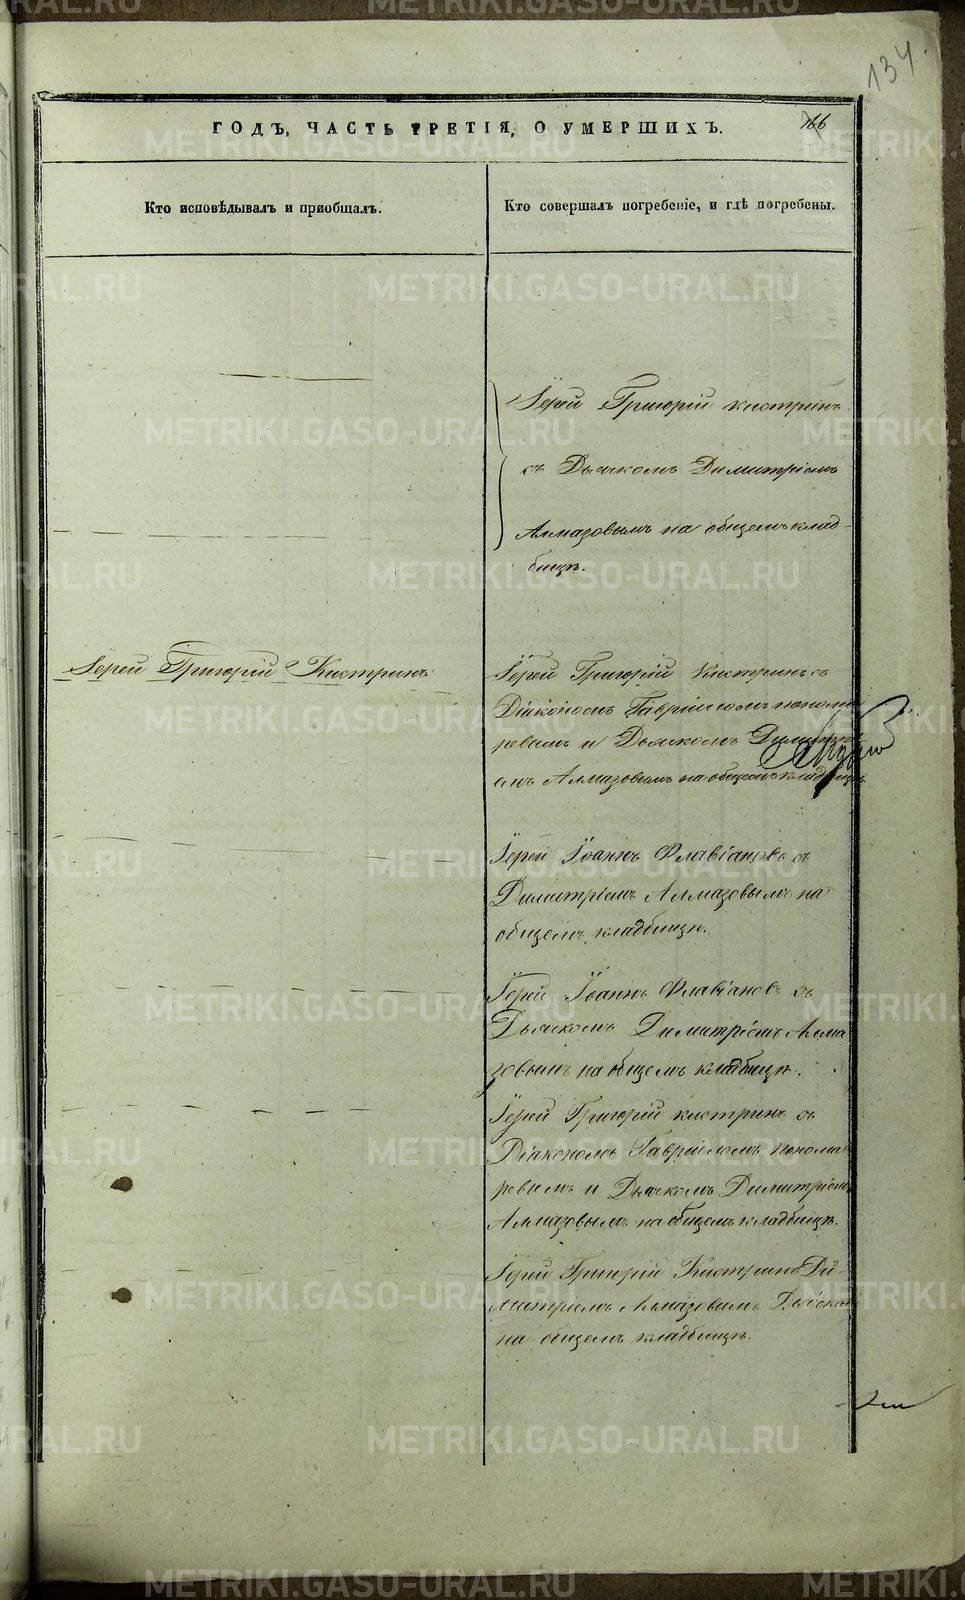 134.
ГОДЪ, ЧАСТЬ ТРЕТІЯ, О УМЕРШИХЪ.
166
Кто исповѣдывалъ и пріобщалъ.
Кто совершалъ погребеніе, и гдѣ погребены.
Іерей Григорій Кистринъ
съ Дьячкомъ Димитріемъ
Алмазовымъ на общемъ клад-
бищѣ.
Іерей Григорій Кистринъ
Іерей Григорій Кистринъ съ
Діакономъ Гавріиломъ понома
ревымъ и Дьячкомъ Димитрі
емъ Алмазовымъ на общемъ кладбищѣ
Іерей Іоаннъ Флавіановъ съ
Димитріемъ Алмазовымъ на
общемъ кладбищѣ.
Іерей Іоаннъ Флавіановъ съ
Дьячкомъ Димитріемъ Алма
зовымъ на общемъ кладбищѣ.
Іерей Григорій Кистринъ съ
Діакономъ Гавріиломъ понома
ревымъ и Дьячкомъ Димитріемъ
Алмазовымъ на общемъ кладбищѣ.
Іерей Григорій Кистринъ Ди-
митріемъ Алмазовымъ
на общемъ кладбищѣ.
METRIKI.GASO-URAL.RU